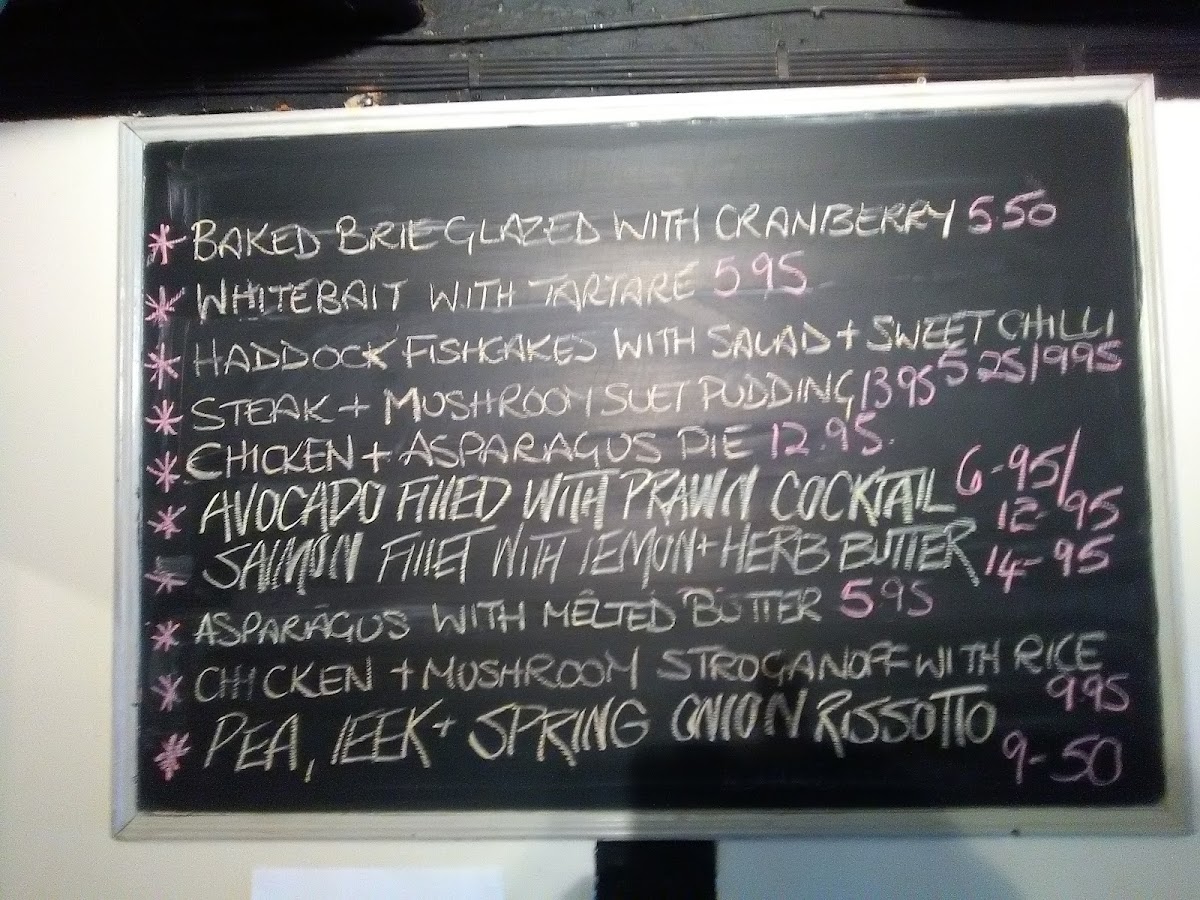 * BAKED BRIE GLAZED WITH CRANBERRY 5.50
* WHITEBAIT WITH TARTARE 5 95
* HADDOCK FISHCAKES WITH SALAD + SWEET CHILLI
5 25/9 95
* STEAK + MUSHROOM SUET PUDDING 13 95
* CHICKEN + ASPARAGUS PIE 12.95.
* AVOCADO FILLED WITH PRAWN COCKTAIL 6-95/
12-95
* SALMON FILLET WITH LEMON + HERB BUTTER 14-95
* ASPARAGUS WITH MELTED BUTTER 5 95
* CHICKEN + MUSHROOM STROGANOFF WITH RICE
9 95
* PEA, LEEK + SPRING ONION RISSOTTO
9-50